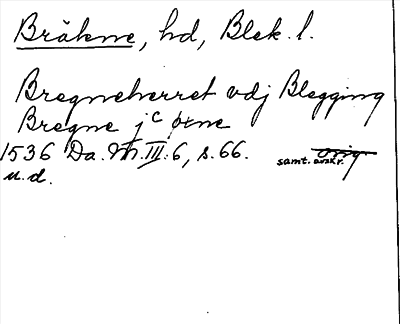 Bräkne, hd, Blek. l.
Bregneherret vdj Blegging
Bregne j c øxne
1536 Da. M. III. 6, s. 66. orig
samt. avskr.
u.d.